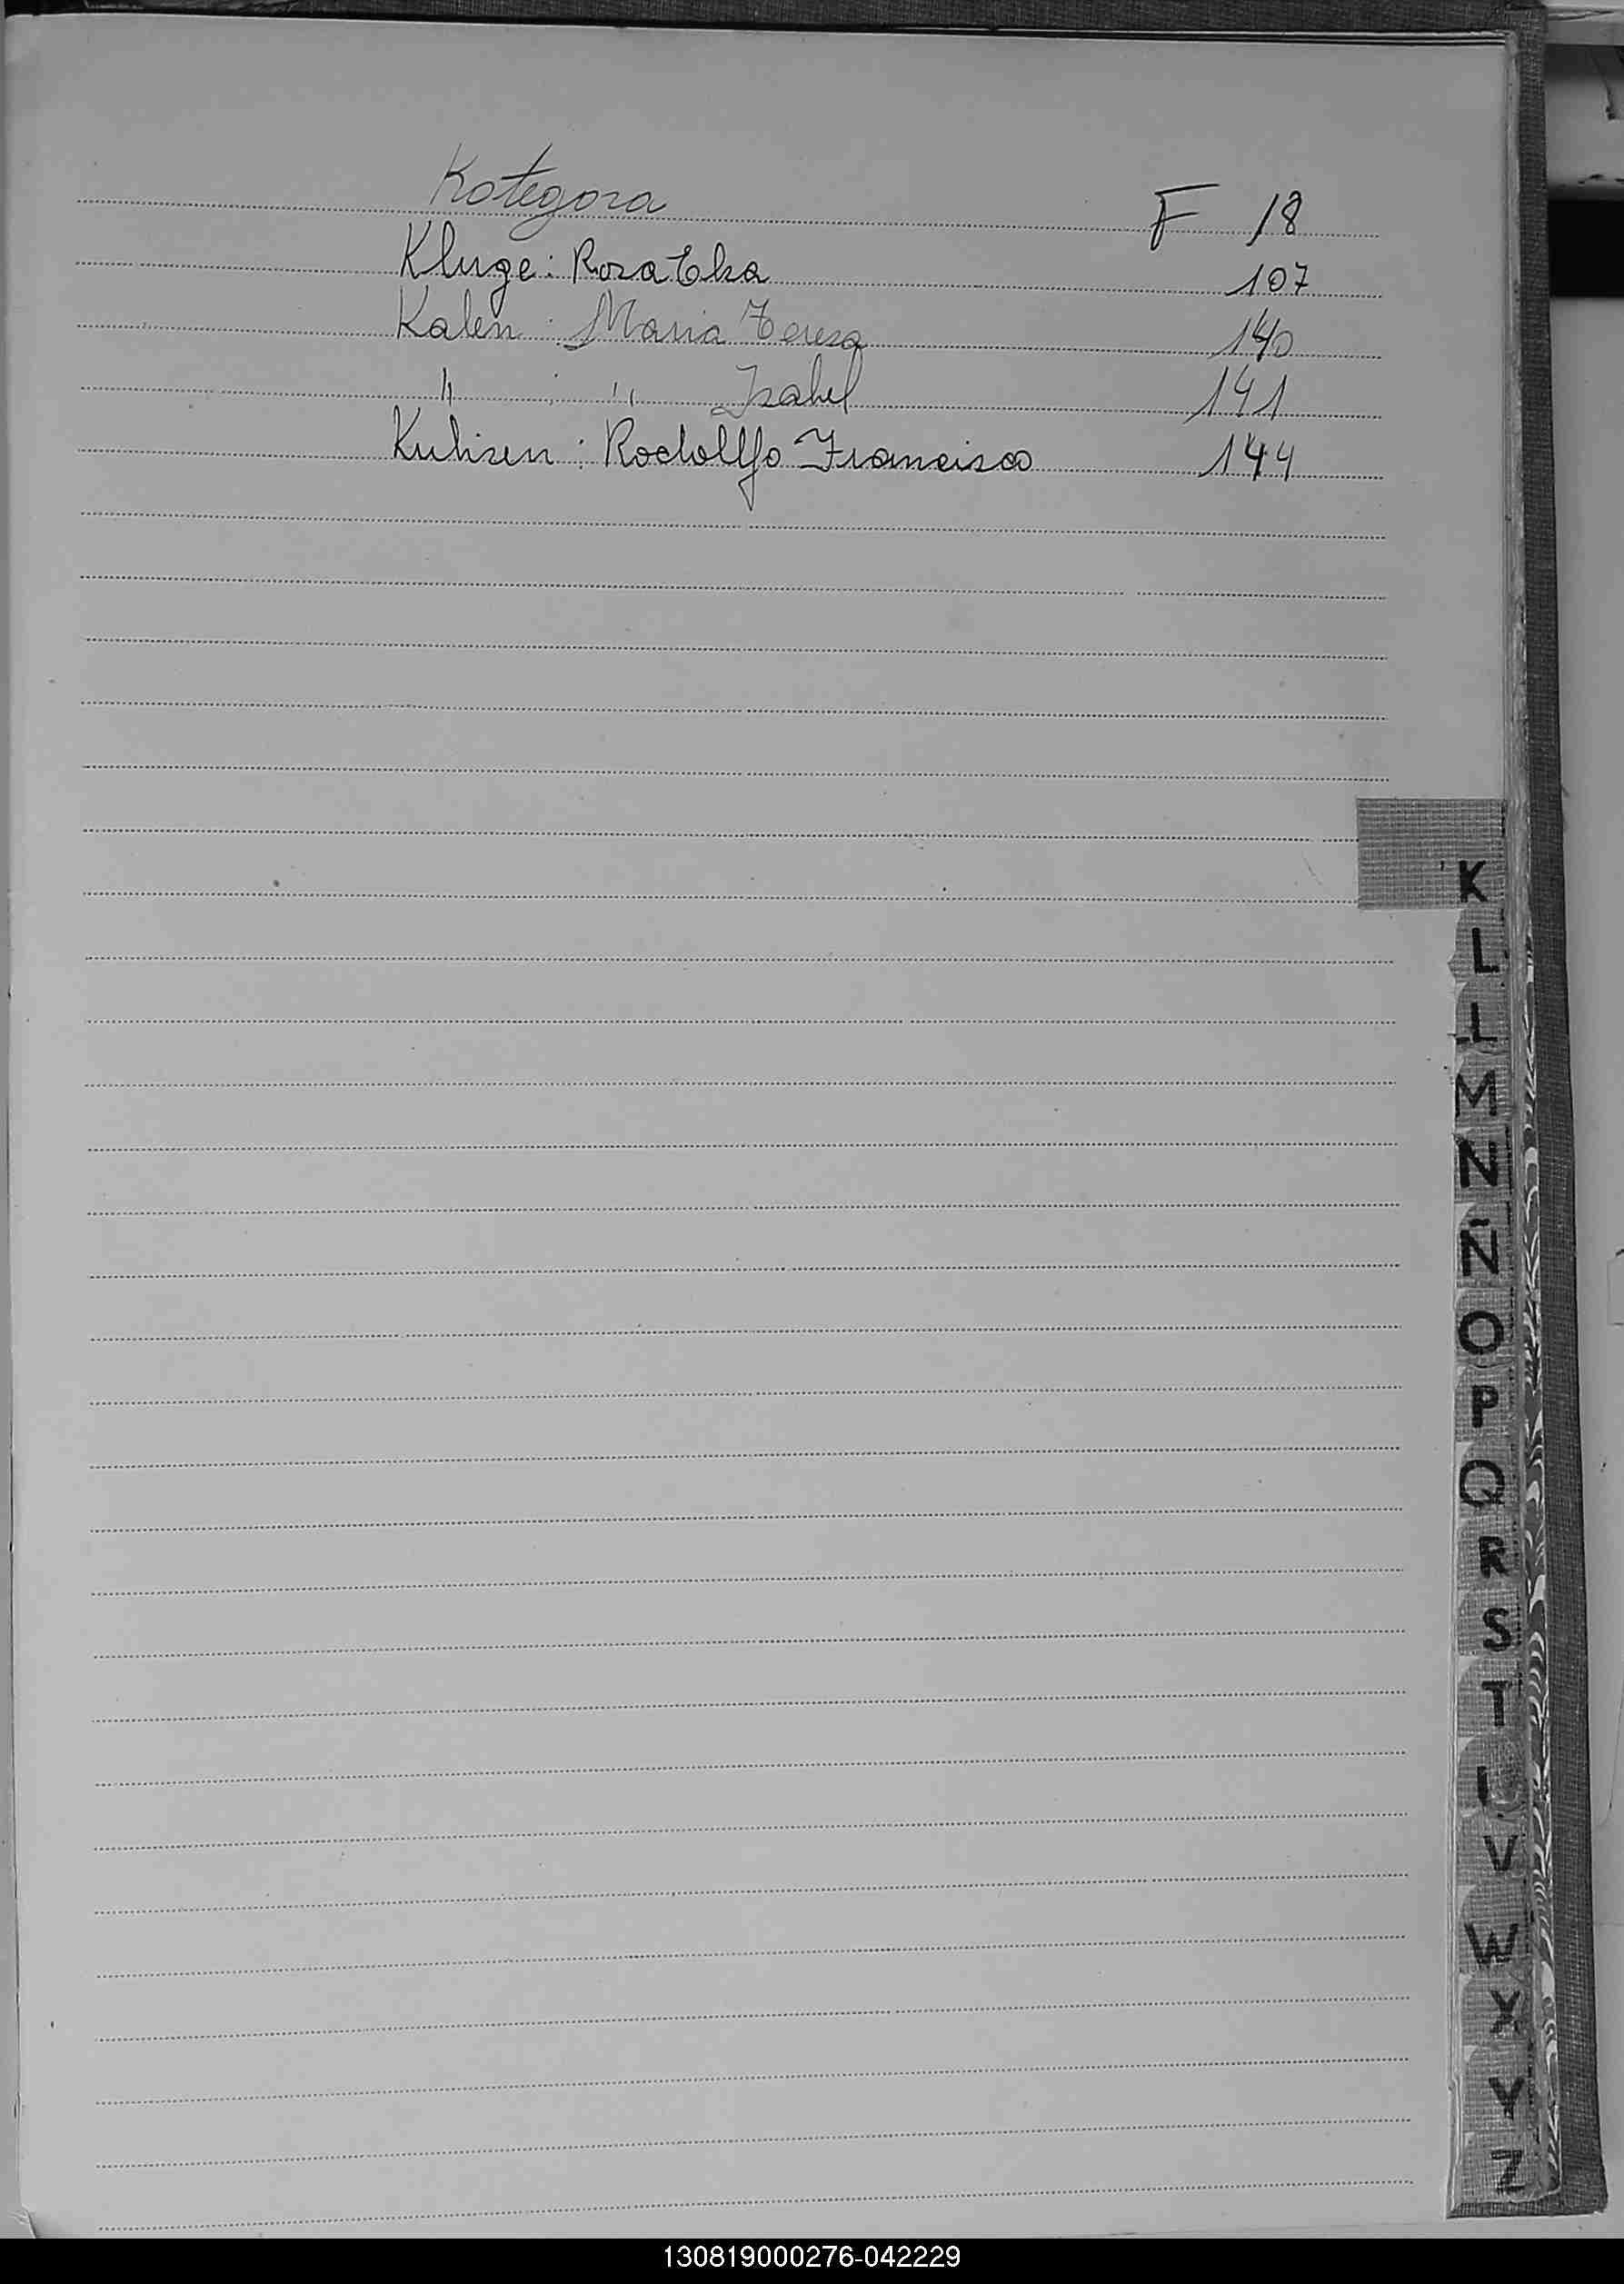 Kotegora F 18
Kluge: Rosa Elsa 107
Kalen: Maria Teresa 140
" : " Isabel 141
Kuhisen: Rodolfo Francisco 144
K
L
M
N
Ñ
O
P
Q
R
S
T
V
W
X
Y
Z
130819000276-042229